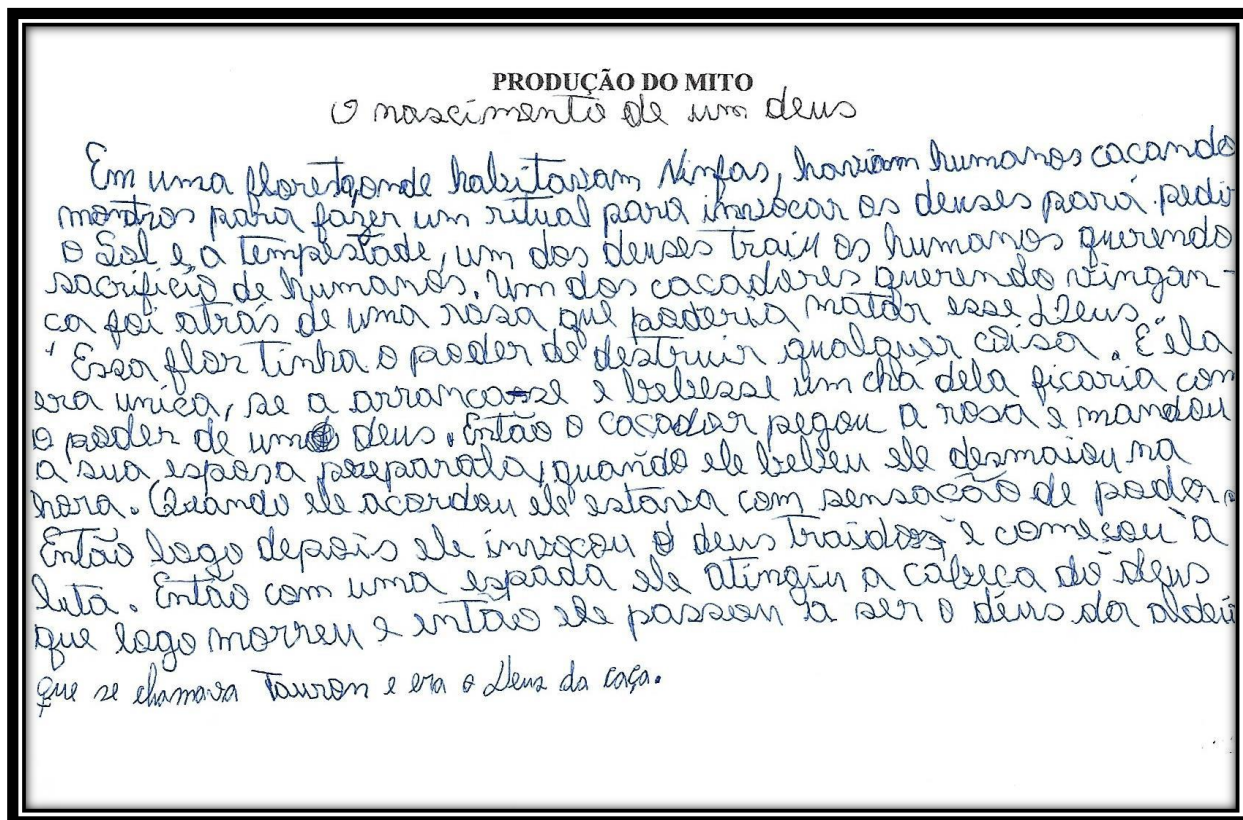 PRODUÇÃO DO MITO
O nascimento de um deus
Em uma floresta onde habitavam Ninfas, haviam humanos cacando
montros para fazer um ritual para invocar os deuses para pedir
o Sol e a tempestade, um dos deuses traiu os humanos querendo
sacrificio de humanos. Um dos cacadores querendo vingan-
ca foi atrás de uma rosa que poderia matar esse Deus.
Essa flor tinha o poder de destruir qualquer coisa. E ela
era unica, se a arrancasse e bebesse um chá dela ficaria com
o poder de um deus. Então o cacador pegou a rosa e mandou
a sua esposa preparala, quando ele bebeu ele desmaiou na
hora. Quando ele acordou ele estava com sensacão de poder.
Então logo depois ele invocou o deus traidor e começou a
luta. Então com uma espada ele atingiu a cabeca do deus
que logo morreu e então ele passou a ser o deus da aldeia
que se chamava Tauron e era o Deus da caça.